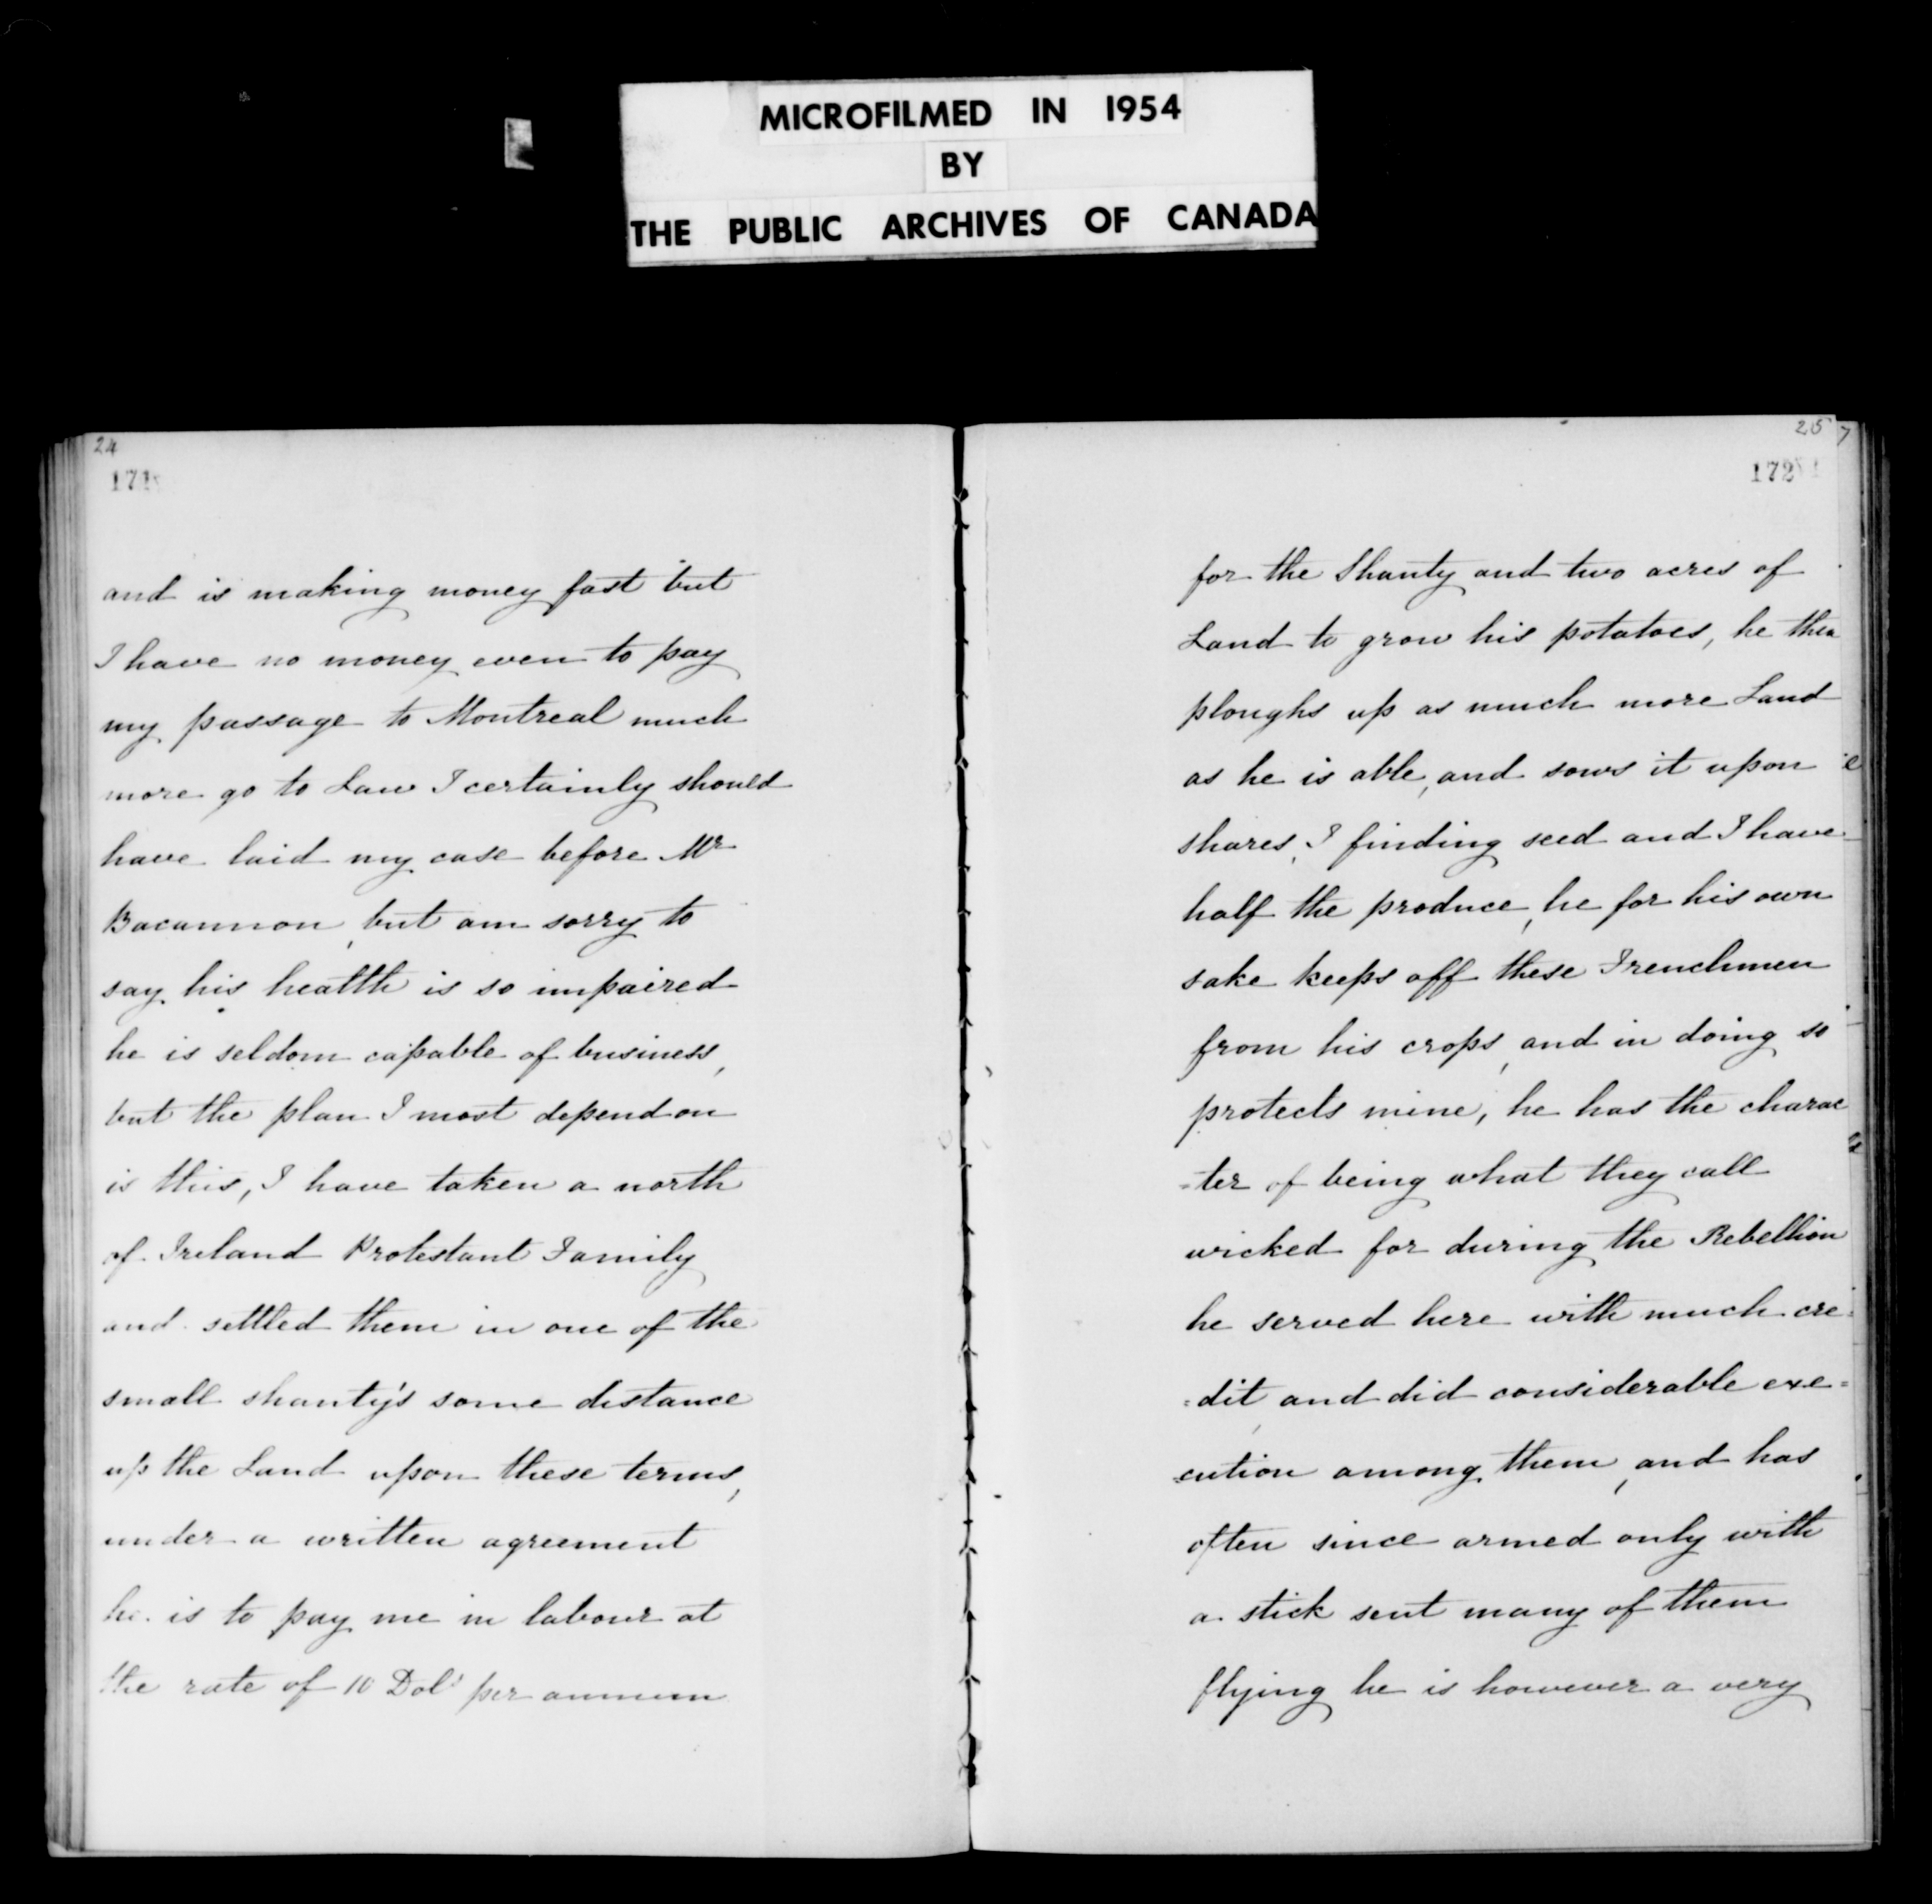 MICROFILMED IN 1954
BY
THE PUBLIC ARCHIVES OF CANADA
24
171
and is making money fast but
I have no money even to pay
my passage to Montreal much
more go to Law I certainly should
have laid my case before Mr
Bacannon, but am sorry to
say his health is so impaired
he is seldom capable of business,
but the plan I most depend on
is this, I have taken a north
of Ireland Protestant Family
and settled them in one of the
small shanty's some distance
up the Land upon these terms,
under a written agreement
he is to pay me in labour at
the rate of 10 Dols per annum
25
172
for the Shanty and two acres of
Land to grow his potatoes, he then
ploughs up as much more Land
as he is able, and sows it upon
shares, I finding seed and I have
half the produce, he for his own
sake keeps off these Frenchmen
from his crops, and in doing so
protects mine, he has the charac
=ter of being what they call
wicked for during the Rebellion
he served here with much cre=
=dit, and did considerable exe=
cution among them, and has
often since armed only with
a stick sent many of them
flying he is however a very